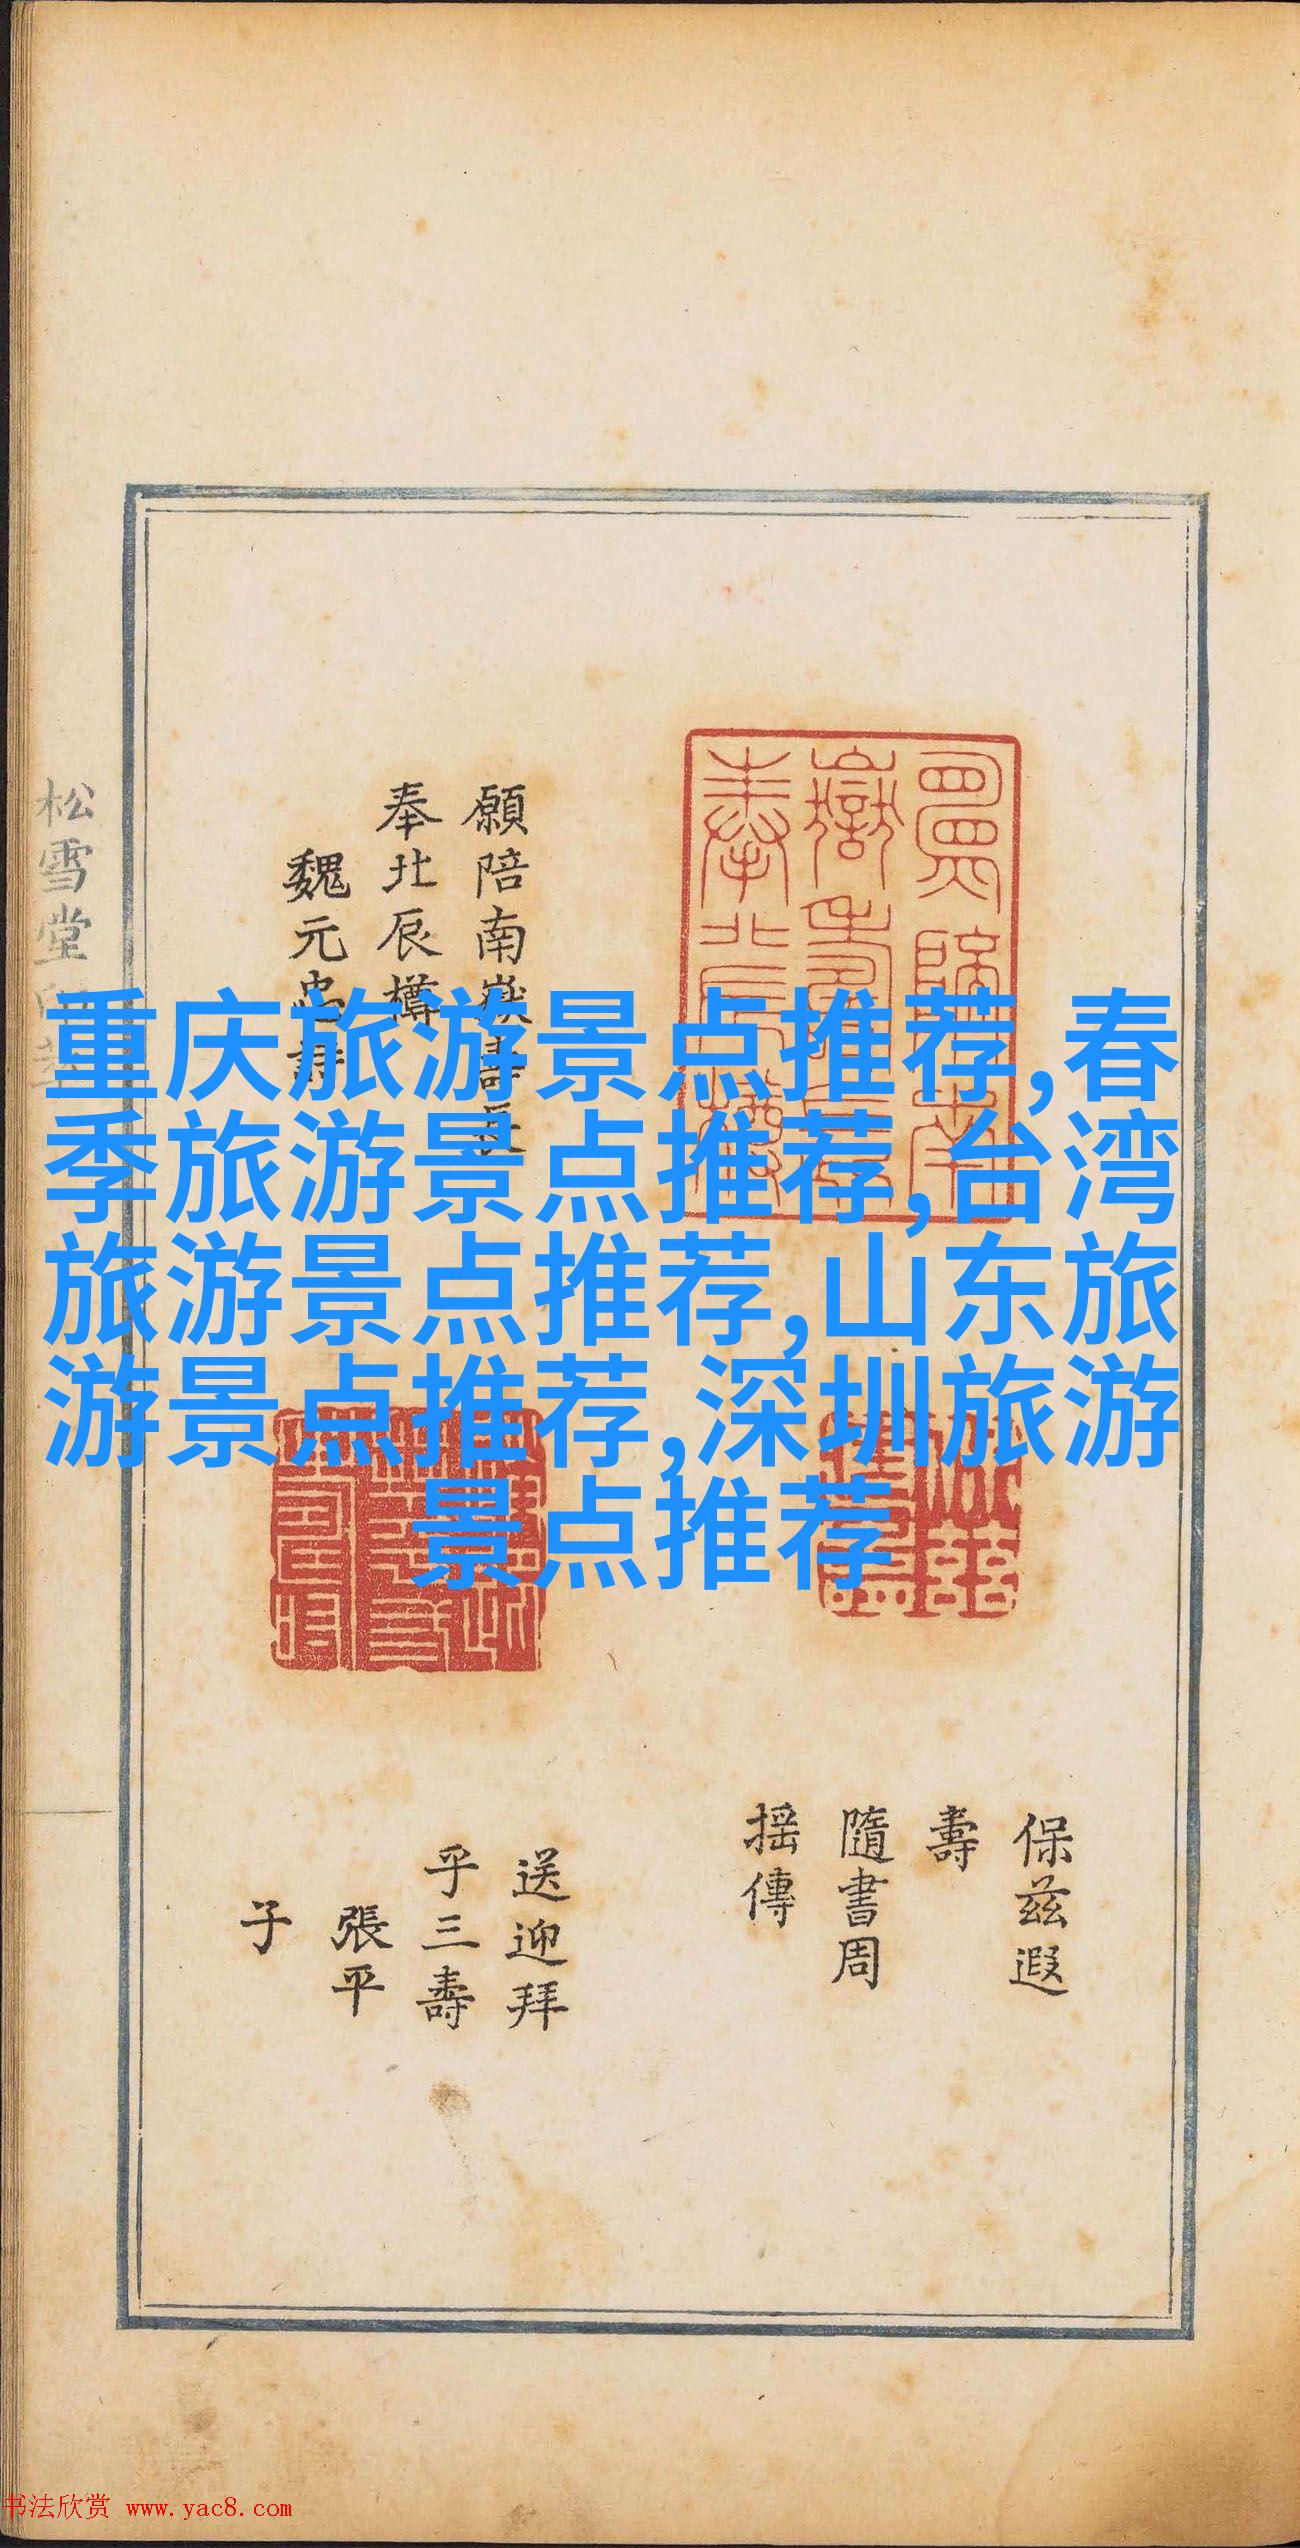 重庆旅游景点推荐,春
季旅游景点推荐,台湾
旅游景点推荐,山东旅
游景点推荐,深圳旅游
景点推荐
願陪南嶽壽長
奉北辰樽
魏元忠詩
保茲遐
壽
隨書周
搖傳
送迎拜
乎三壽
張平
子
松雪堂印萃
书法欣赏 www.yac8.com